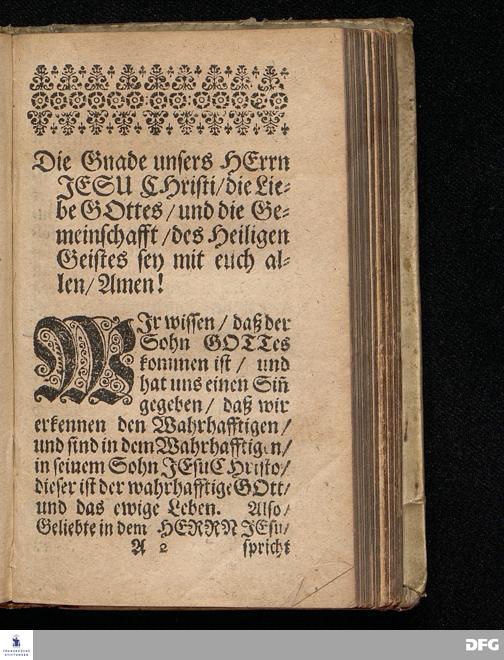 Die Gnade unsers HErrn
JESU CHristi/die Lie-
be GOttes/und die Ge-
meinschafft/des Heiligen
Geistes sey mit euch al-
len/Amen!
WJr wissen/daß der
Sohn GOTTes
kommen ist/ und
hat uns einen Siñ
gegeben/ daß wir
erkennen den Wahrhafftigen/
und sind in dem Wahrhafftigen/
in seinem Sohn JEsu CHristo/
dieser ist der wahrhafftige GOtt/
und das ewige Leben. Also/
Geliebte in dem HERRN JEsu/
A 2 spricht
FRANCKESCHE
STIFTUNGEN
DFG